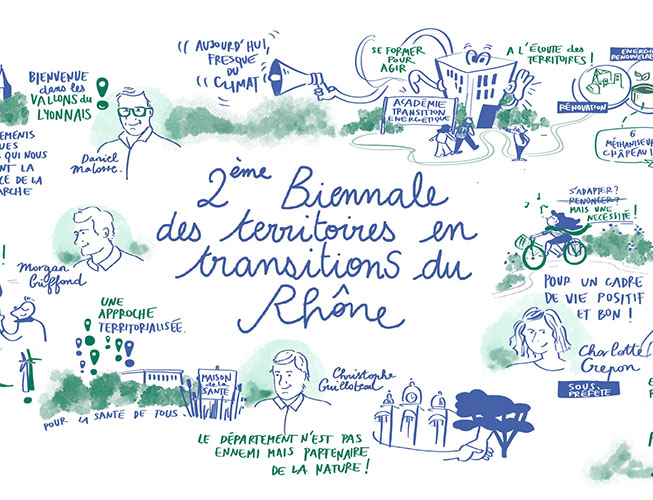 BIENVENUE
dans les
VALLONS du
LYONNAIS
Daniel
Malosse.
(( AUJOURD'HUI,
FRESQUE
DU
(( CLIMAT
SE FORMER
POUR
AGIR
ACADÉMIE
TRANSITION
ENERGÉTIQUE
A L'ÉCOUTE des
TERRITOIRES !
RÉNOVATION
6
CHÂPEAU
QUI NOUS
2ème Biennale
des territoires en
transitions du
Rhône
Morgan
Griffond
S'ADAPTER ?
RENONCER ?
MAIS UNE
NÉCESSITÉ !
POUR UN CADRE
DE VIE POSITIF
ET BON !
Charlotte
Crepon
SOUS-
PRÉFÈTE
UNE
APPROCHE
TERRITORIALISÉE.
MAISON
de la
SANTÉ
POUR LA SANTÉ DE TOUS.
Christophe
Guilloteau
LE DÉPARTEMENT N'EST PAS
ENNEMI MAIS PARTENAIRE
DE LA NATURE !